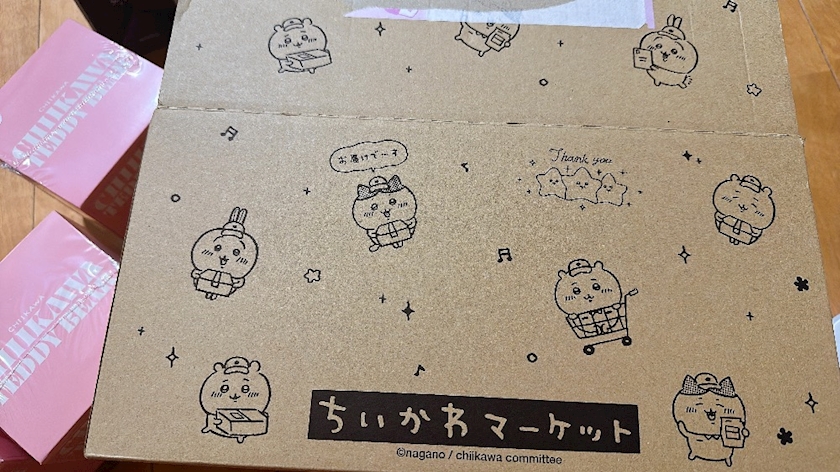 CHIIKAWA
TEDDY BEAR
お届けで〜す
Thank you
CHIIKAWA
TEDDY BEAR
ちいかわマーケット
©nagano / chiikawa committee